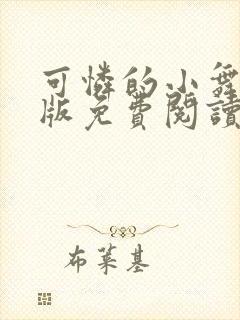 可憐的小舞
版免費閱讀
布萊基